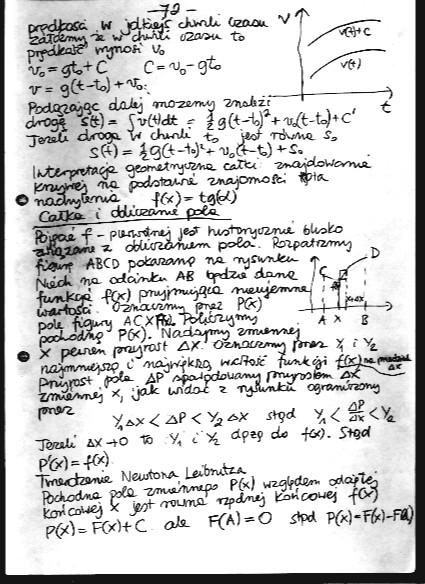 —72—
prędkości w jakiejś chwili czasu
załóżmy że w chwili czasu t₀
prędkość wynosi v₀
v₀ = gt₀ + C C = v₀ - gt₀
v = g(t-t₀) + v₀.
V
v(t)+C
v(t)
t
Podążając dalej możemy znaleźć
drogę s(t) = ∫v(t)dt = ½g(t-t₀)² + v₀(t-t₀) + C'
Jeżeli droga w chwili t₀ jest równa s₀
s(t) = ½g(t-t₀)² + v₀(t-t₀) + s₀
Interpretacja geometryczna całki: znajdowanie
krzywej na podstawie znajomości kąta
nachylenia f(x) = tg(α)
Całka i obliczanie pola
Pojęcie f - pierwotnej jest historycznie blisko
związane z obliczaniem pola. Rozpatrzmy
figurę ABCD pokazaną na rysunku
Niech na odcinku AB będzie dana
funkcja f(x) przyjmująca nieujemne
wartości. Oznaczmy przez P(x)
pole figury ACX Policzymy
pochodną P(x). Nadajmy zmiennej
x pewien przyrost Δx. Oznaczmy przez Y₁ i Y₂
najmniejszą i największą wartość funkcji f(x) na przedziale
Δx
C
D
A
X
x+Δx
B
Przyrost pola ΔP spowodowany przyrostem Δx
zmiennej x, jak widać z rysunku ograniczony
przez
Y₁Δx < ΔP < Y₂Δx stąd Y₁ < ΔP/Δx < Y₂
Jeżeli Δx → 0 to Y₁ i Y₂ dążą do f(x). Stąd
P'(x) = f(x).
Twierdzenie Newtona Leibnitza
Pochodna pola zmiennego P(x) względem odciętej
końcowej x jest równa rzędnej końcowej f(x)
P(x) = F(x) + C ale F(A) = 0 stąd P(x) = F(x) - F(A)